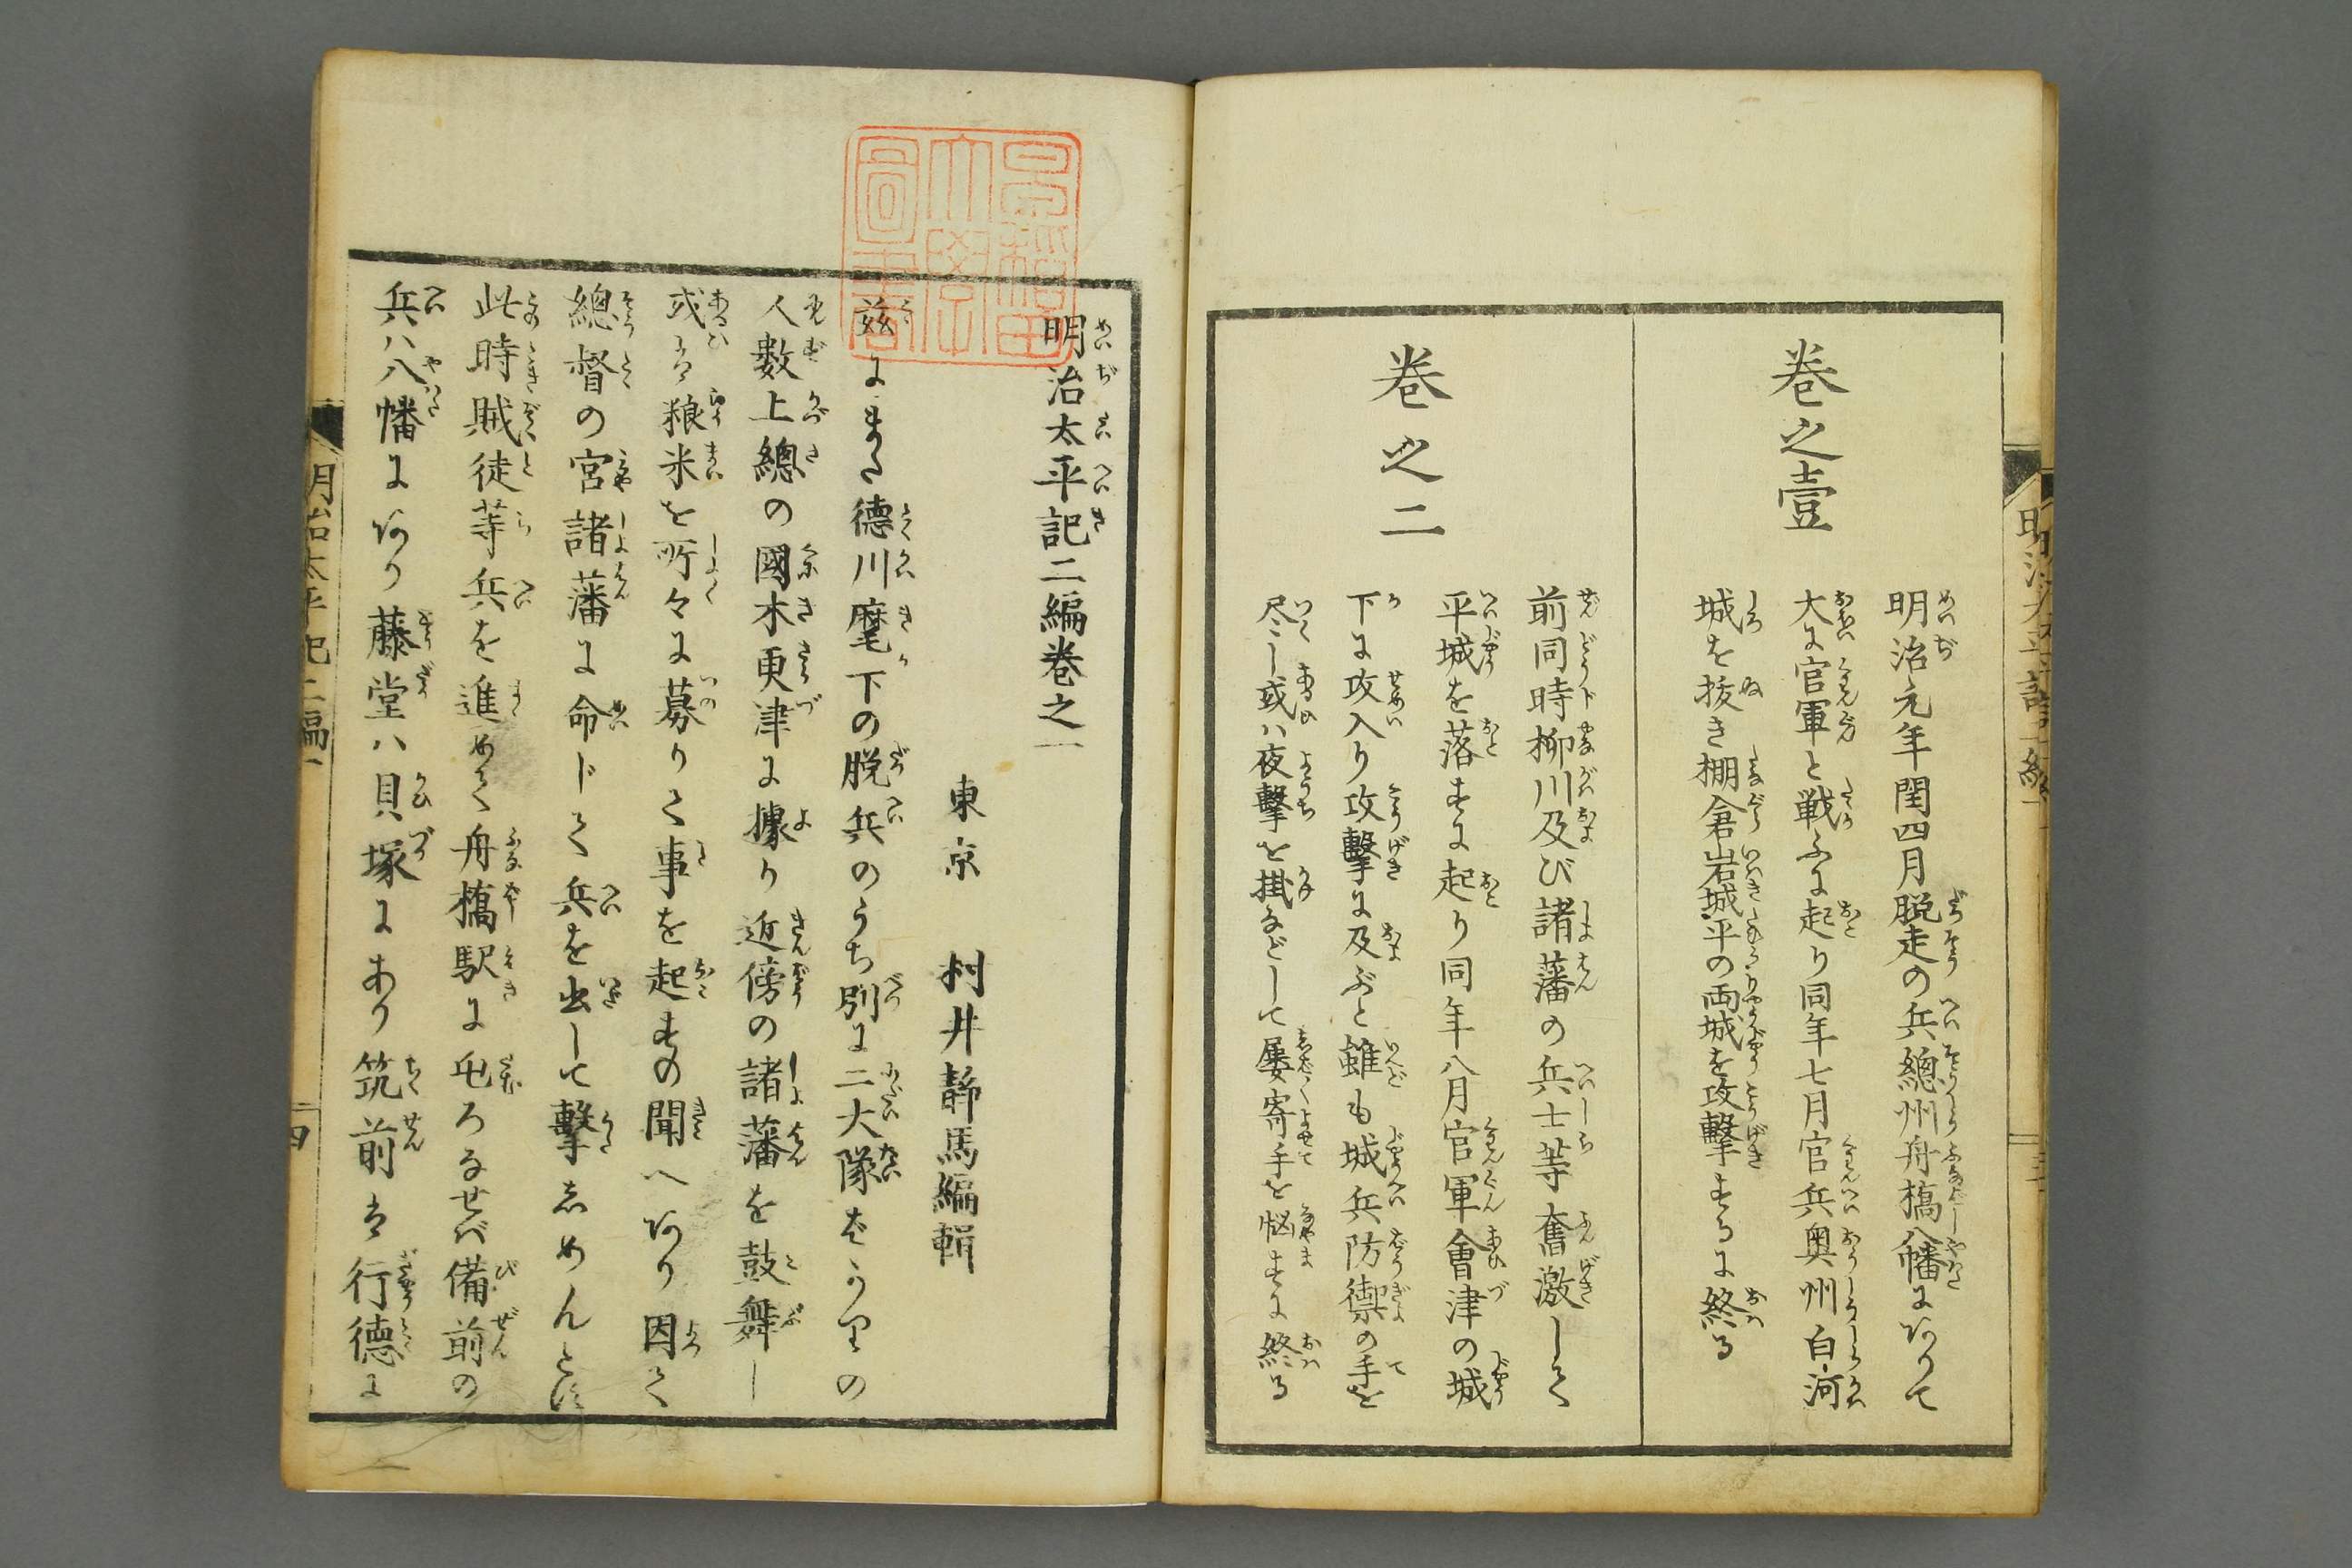 巻之壹
明治元年閏四月脱走の兵總州舟橋八幡にありて
大に官軍と戦ふに起り同年七月官兵奥州白河
城を抜き棚倉岩城平の両城を攻撃するに終る
巻之二
前同時柳川及び諸藩の兵士等奮激して
平城を落すに起り同年八月官軍會津の城
下に攻入り攻撃に及ぶと雖も城兵防禦の手を
尽し或ハ夜撃を掛などして屡寄手を悩すに終る
明治太平記二編巻之一
東京 村井靜馬編輯
茲にまた德川麾下の脱兵のうち別に二大隊ばかりの
人數上總の國木更津に據り近傍の諸藩を鼓舞し
或は粮米を所々に募りて事を起すの聞へあり因て
總督の宮諸藩に命じて兵を出して擊しめんとす
此時賊徒等兵を進めて舟橋駅に屯ろなせバ備前の
兵ハ八幡にあり藤堂ハ貝塚にあり筑前は行德に
明治太平記二編一
四